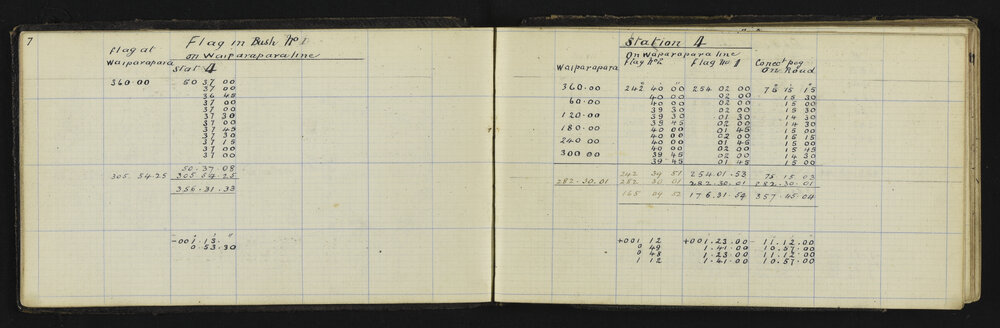 7
Flag in Bush No 1
Flag at
Waiparapara
on Waiparapara line
Stat 4
360.00 50 37 00
37 00
36 45
37 00
37 00
37 30
37 00
37 45
37 30
37 15
37 00
37 00
50.37.08
305.54.25 305 54 25
356.31.33
-001.13.
0.53.30
Station 4
On Waiparapara line
Waiparapara Flag No 2 Flag No 1 Conect peg
On Road
360.00 242 40 00 254 02 00 75 15 15
40 00 02 00 15 30
60.00 40 00 02 00 15 00
39 30 02 00 15 30
120.00 39 30 01 30 14 30
39 45 02 00 14 30
180.00 40 00 01 45 15 00
40 00 02 00 15 15
240.00 40 00 01 45 15 00
40 00 02 00 15 45
300.00 39 45 02 00 14 30
39 45 01 45 15 00
242 39 51 254.01.53 75 15 03
282.30.01 282 30 01 282.30.01 282.30.01
165 09 52 176.31.54 357.45.04
+001 12 +001.23.00 -11.12.00
0 49 1.41.00 10.57.00
0 48 1.23.00 11.12.00
1 12 1.41.00 10.57.00